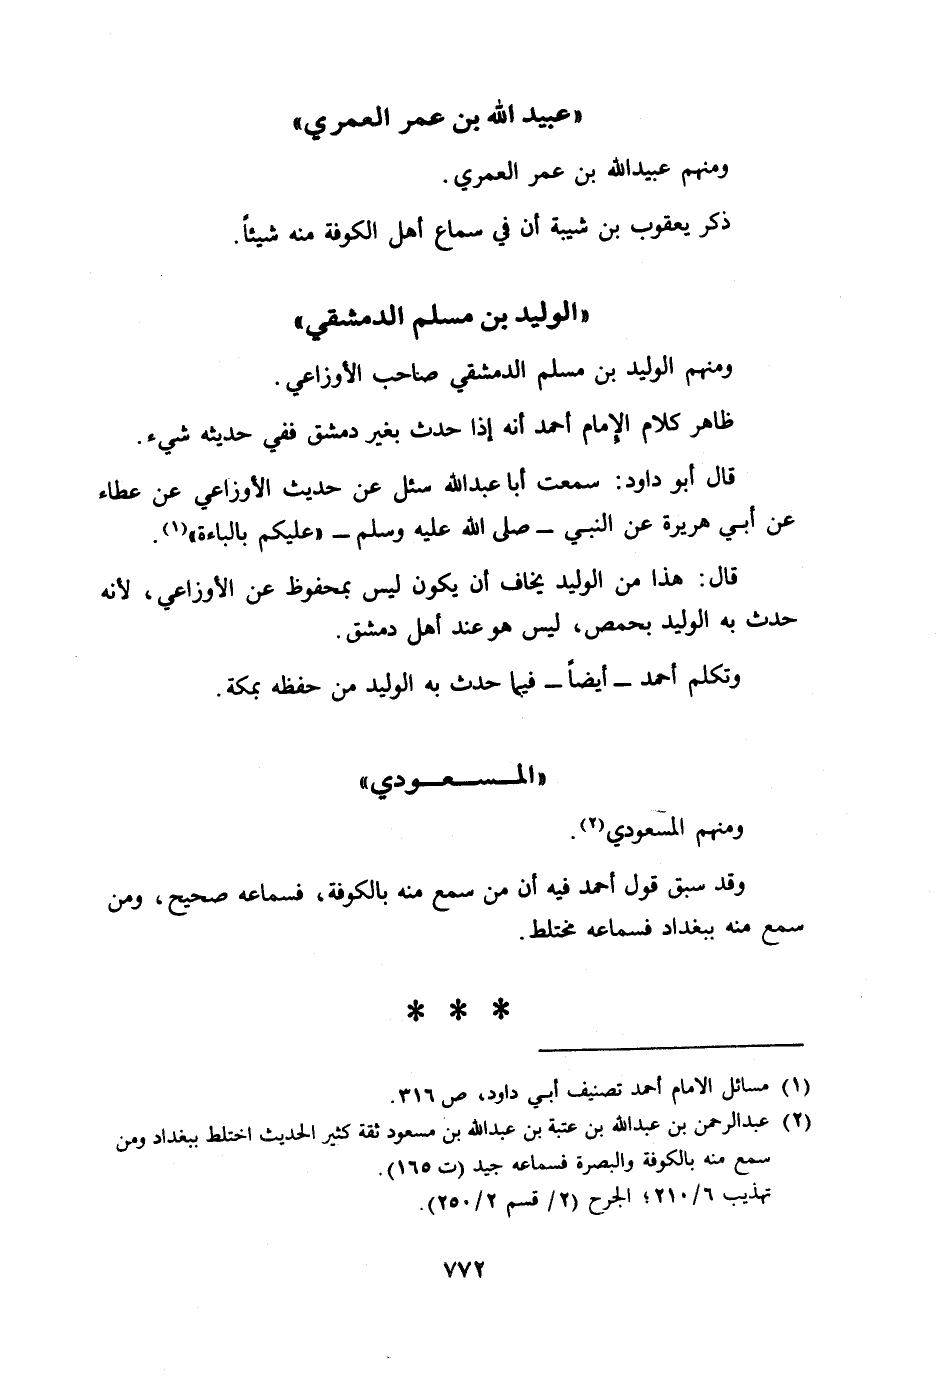 «عبيد الله بن عمر العمري»
ومنهم عبيدالله بن عمر العمري.
ذكر يعقوب بن شيبة أن في سماع أهل الكوفة منه شيئاً.
«الوليد بن مسلم الدمشقي»
ومنهم الوليد بن مسلم الدمشقي صاحب الأوزاعي.
ظاهر كلام الإمام أحمد أنه إذا حدث بغير دمشق ففي حديثه شيء.
قال أبو داود: سمعت أبا عبدالله سئل عن حديث الأوزاعي عن عطاء
عن أبي هريرة عن النبي – صلى الله عليه وسلم – «عليكم بالباءة»(١).
قال: هذا من الوليد يخاف أن يكون ليس بمحفوظ عن الأوزاعي، لأنه
حدث به الوليد بحمص، ليس هو عند أهل دمشق.
وتكلم أحمد – أيضاً – فيما حدث به الوليد من حفظه بمكة.
«المسعودي»
ومنهم المسعودي(٢).
وقد سبق قول أحمد فيه أن من سمع منه بالكوفة، فسماعه صحيح، ومن
سمع منه ببغداد فسماعه مختلط.
* * *
(١) مسائل الامام أحمد تصنيف أبي داود، ص ٣١٦.
(٢) عبدالرحمن بن عبدالله بن عتبة بن عبدالله بن مسعود ثقة كثير الحديث اختلط ببغداد ومن
سمع منه بالكوفة والبصرة فسماعه جيد (ت ١٦٥).
تهذيب ٢١٠/٦؛ الجرح (٢/ قسم ٢٥٠/٢).
٧٧٢